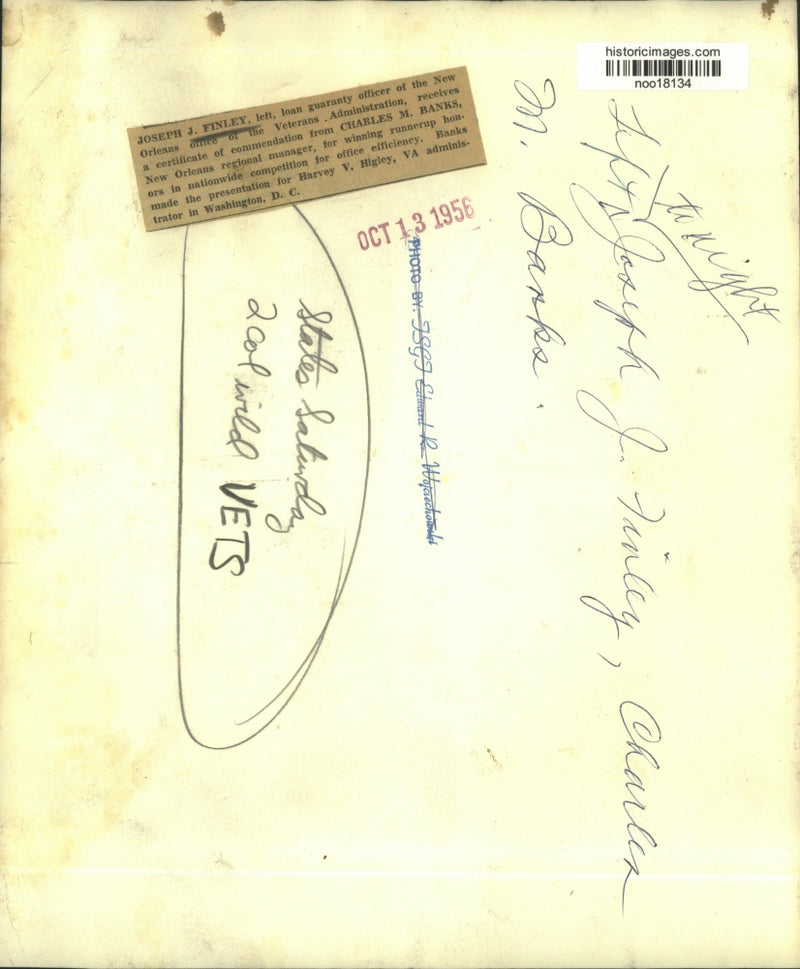 historicimages.com
noo18134
JOSEPH J. FINLEY, left, loan guaranty officer of the New
Orleans office of the Veterans Administration, receives
a certificate of commendation from CHARLES M. BANKS,
New Orleans regional manager, for winning runnerup hon-
ors in nationwide competition for office efficiency. Banks
made the presentation for Harvey V. Higley, VA adminis-
trator in Washington, D. C.
OCT 13 1956
PHOTO BY: TSGT Edward R. Wojciechowski
to right
Left Joseph J. Finley, Charles
M. Banks.
States Saturday
2 col wild VETS